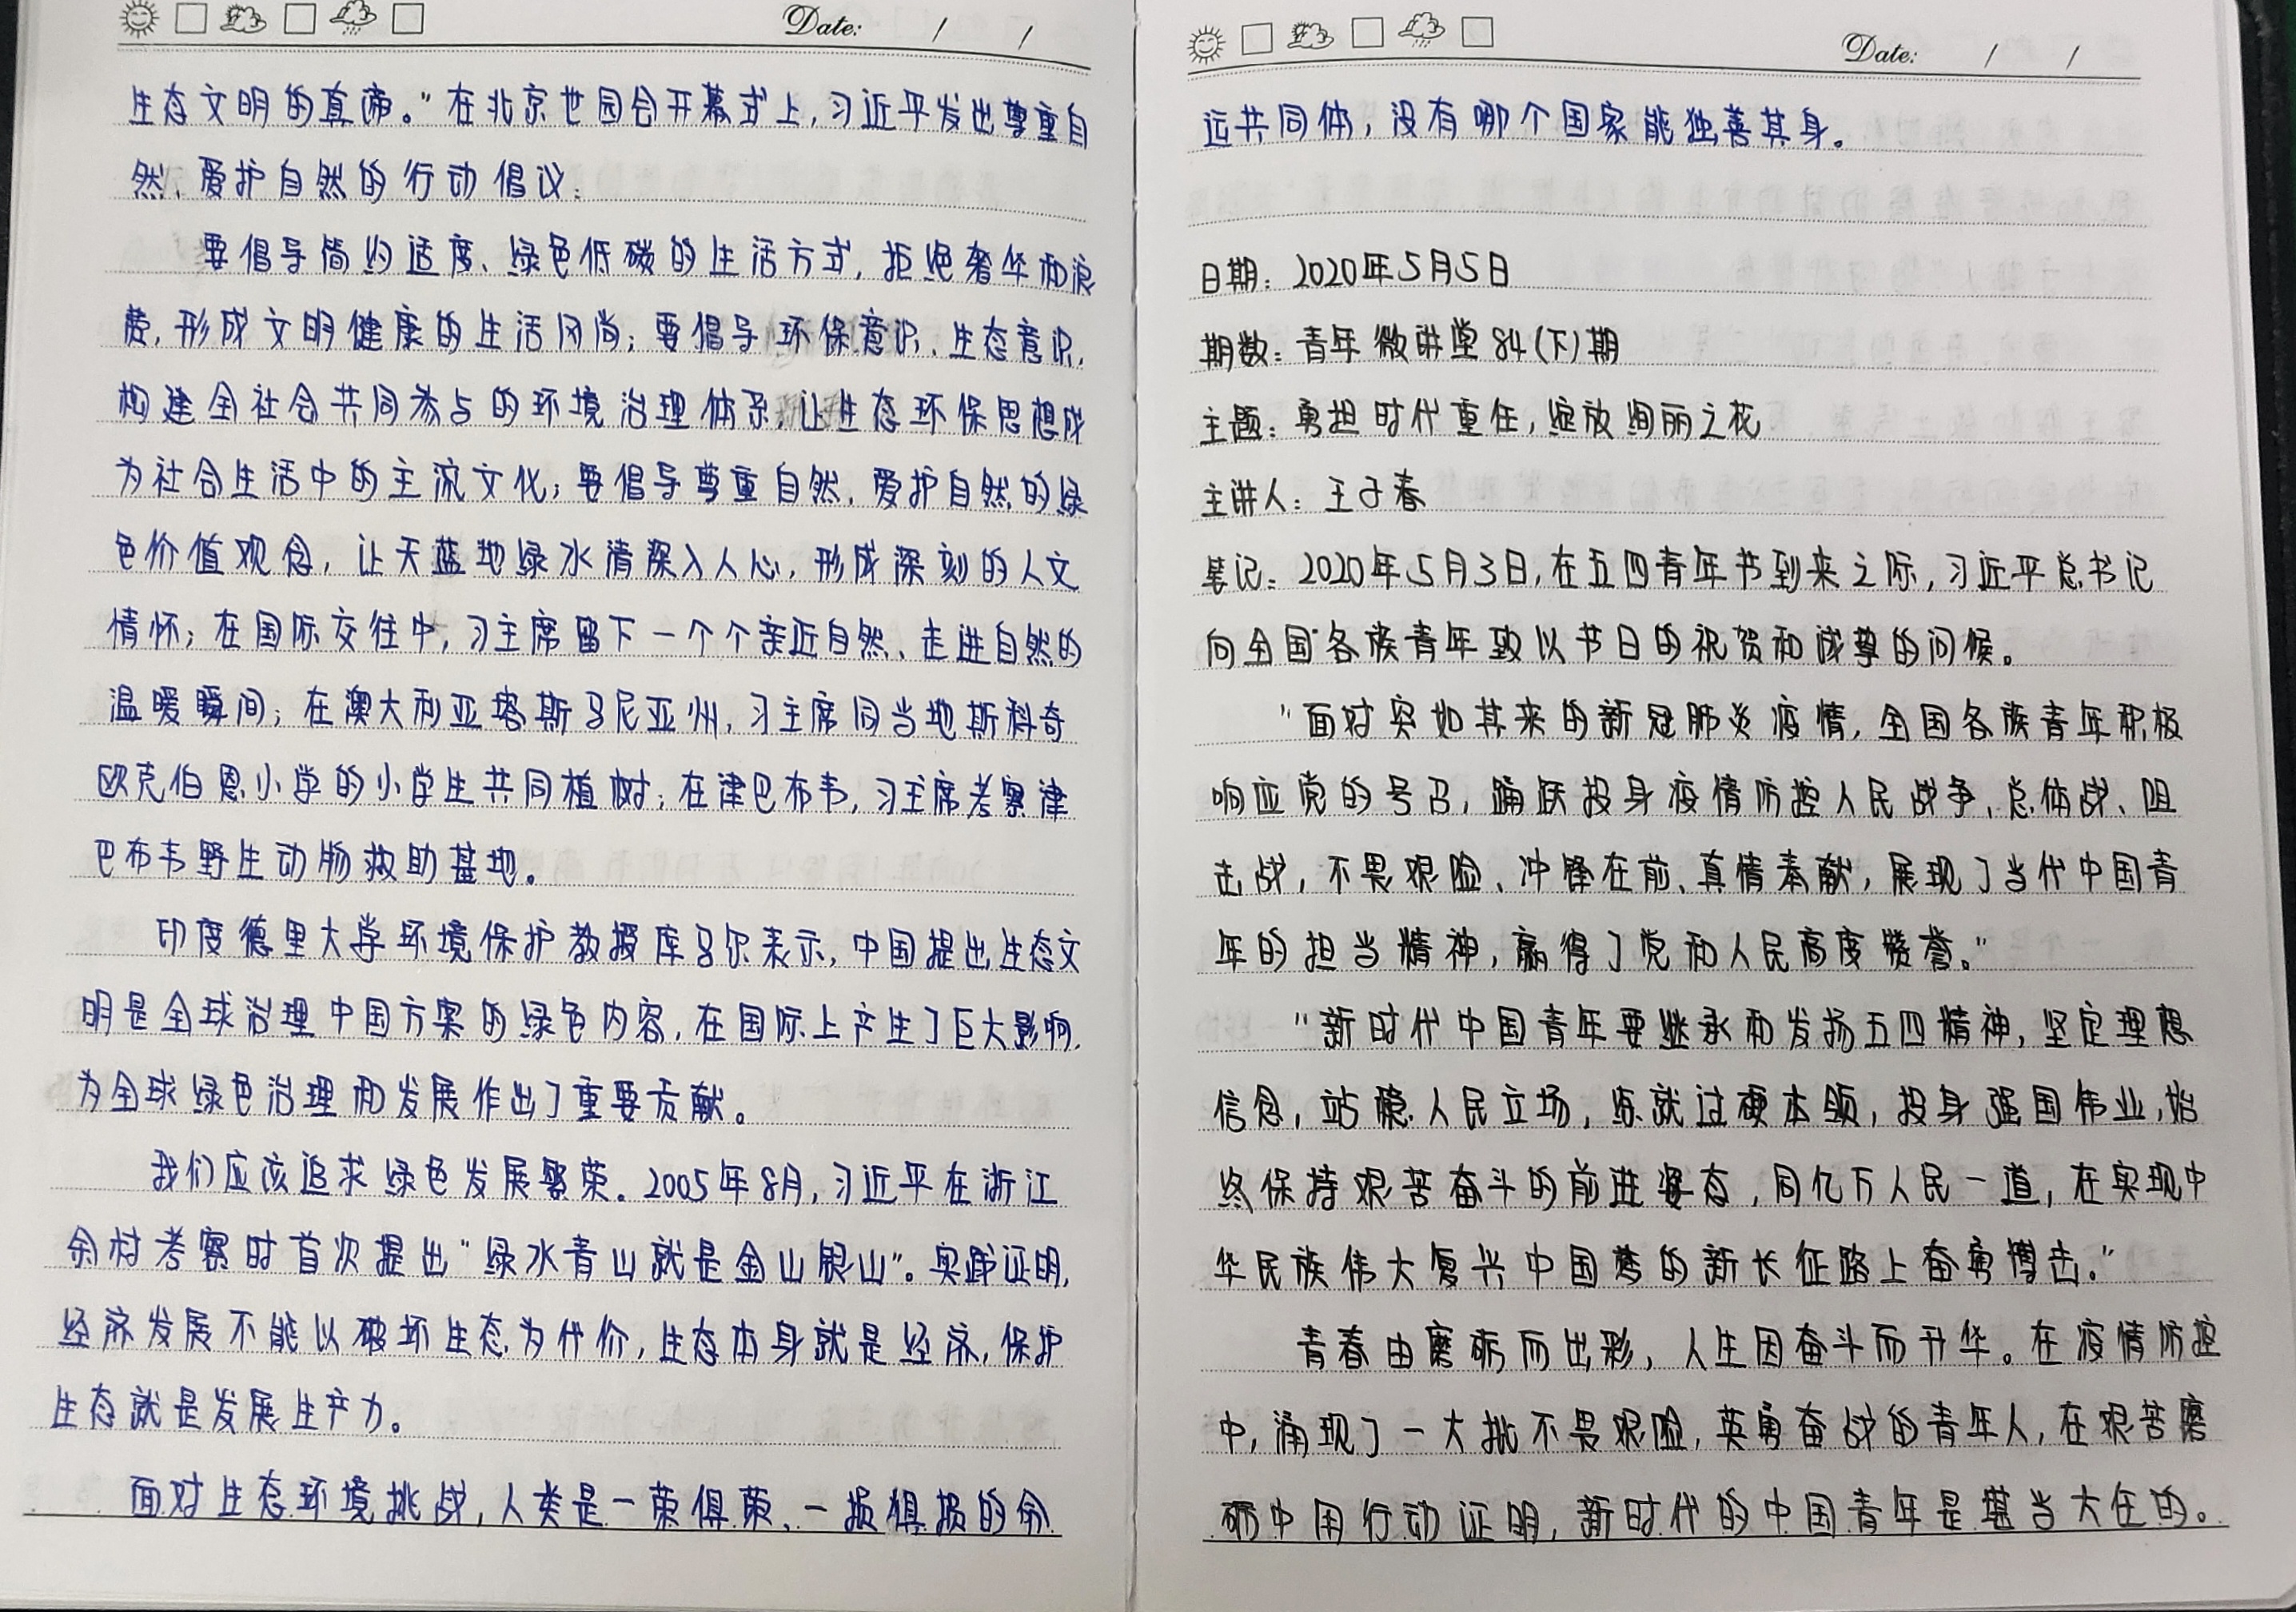 Date: / /
生态文明的真谛。"在北京世园会开幕式上,习近平发出尊重自
然、爱护自然的行动倡议:
要倡导简约适度、绿色低碳的生活方式,拒绝奢华和浪
费,形成文明健康的生活风尚;要倡导环保意识、生态意识,
构建全社会共同参与的环境治理体系,让生态环保思想成
为社会生活中的主流文化;要倡导尊重自然、爱护自然的绿
色价值观念,让天蓝地绿水清深入人心,形成深刻的人文
情怀;在国际交往中,习主席留下一个个亲近自然、走进自然的
温暖瞬间;在澳大利亚塔斯马尼亚州,习主席同当地斯科奇
欧克伯恩小学的小学生共同植树;在津巴布韦,习主席考察津
巴布韦野生动物救助基地。
印度德里大学环境保护教授库马尔表示,中国提出生态文
明是全球治理中国方案的绿色内容,在国际上产生了巨大影响,
为全球绿色治理和发展作出了重要贡献。
我们应该追求绿色发展繁荣。2005年8月,习近平在浙江
余村考察时首次提出"绿水青山就是金山银山"。实践证明,
经济发展不能以破坏生态为代价,生态本身就是经济,保护
生态就是发展生产力。
面对生态环境挑战,人类是一荣俱荣、一损俱损的命
Date: / /
运共同体,没有哪个国家能独善其身。
日期:2020年5月5日
期数:青年微讲堂84(下)期
主题:勇担时代重任,绽放绚丽之花
主讲人:王子春
笔记:2020年5月3日,在五四青年节到来之际,习近平总书记
向全国各族青年致以节日的祝贺和诚挚的问候。
"面对突如其来的新冠肺炎疫情,全国各族青年积极
响应党的号召,踊跃投身疫情防控人民战争、总体战、阻
击战,不畏艰险、冲锋在前、真情奉献,展现了当代中国青
年的担当精神,赢得了党和人民高度赞誉。"
"新时代中国青年要继承和发扬五四精神,坚定理想
信念,站稳人民立场,练就过硬本领,投身强国伟业,始
终保持艰苦奋斗的前进姿态,同亿万人民一道,在实现中
华民族伟大复兴中国梦的新长征路上奋勇搏击。"
青春由磨砺而出彩,人生因奋斗而升华。在疫情防控
中,涌现了一大批不畏艰险,英勇奋战的青年人,在艰苦磨
砺中用行动证明,新时代的中国青年是堪当大任的。